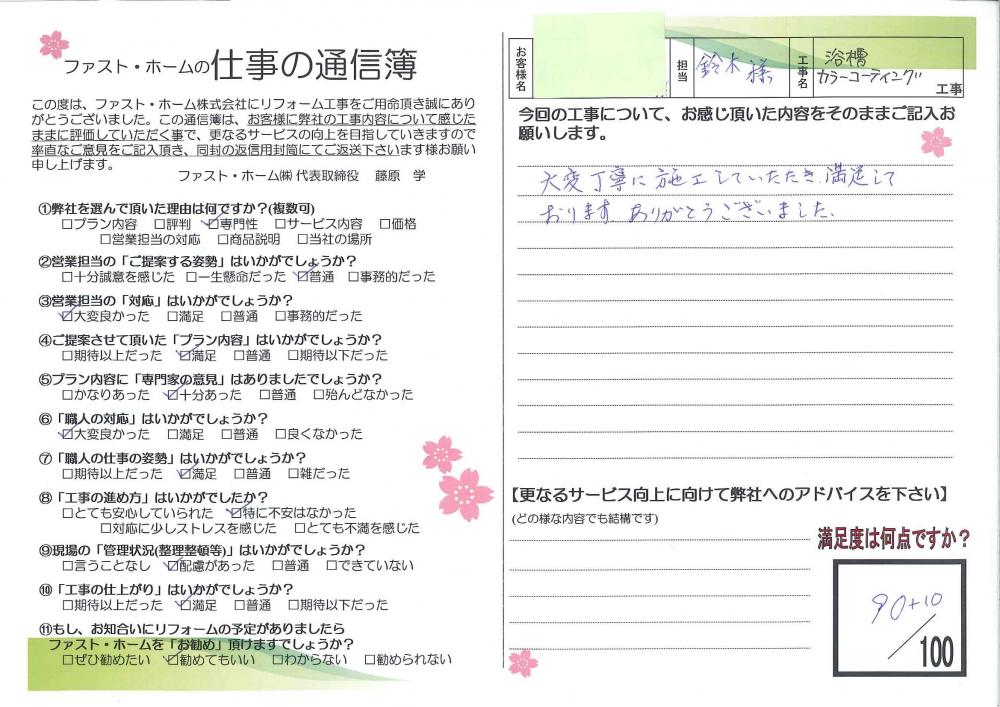 ファスト・ホームの仕事の通信簿
この度は、ファスト・ホーム株式会社にリフォーム工事をご用命頂き誠にあり
がとうございました。この通信簿は、お客様に弊社の工事内容について感じた
ままに評価していただく事で、更なるサービスの向上を目指していきますので
率直なご意見をご記入頂き、同封の返信用封筒にてご返送下さいます様お願い
申し上げます。
ファスト・ホーム㈱ 代表取締役 藤原 学
①弊社を選んで頂いた理由は何ですか？(複数可)
□プラン内容 □評判 ☑専門性 □サービス内容 □価格
□営業担当の対応 □商品説明 □当社の場所
②営業担当の「ご提案する姿勢」はいかがでしょうか？
□十分誠意を感じた □一生懸命だった ☑普通 □事務的だった
③営業担当の「対応」はいかがでしょうか？
☑大変良かった □満足 □普通 □事務的だった
④ご提案させて頂いた「プラン内容」はいかがでしょうか？
□期待以上だった ☑満足 □普通 □期待以下だった
⑤プラン内容に「専門家の意見」はありましたでしょうか？
□かなりあった ☑十分あった □普通 □殆んどなかった
⑥「職人の対応」はいかがでしょうか？
☑大変良かった □満足 □普通 □良くなかった
⑦「職人の仕事の姿勢」はいかがでしょうか？
□期待以上だった ☑満足 □普通 □雑だった
⑧「工事の進め方」はいかがでしたか？
□とても安心していられた ☑特に不安はなかった
□対応に少しストレスを感じた □とても不満を感じた
⑨現場の「管理状況(整理整頓等)」はいかがでしょうか？
□言うことなし ☑配慮があった □普通 □できていない
⑩「工事の仕上がり」はいかがでしょうか？
□期待以上だった ☑満足 □普通 □期待以下だった
⑪もし、お知合いにリフォームの予定がありましたら
ファスト・ホームを「お勧め」頂けますでしょうか？
□ぜひ勧めたい ☑勧めてもいい □わからない □勧められない
お客様名
担当 鈴木 様
工事名 浴槽
カラーコーティング 工事
今回の工事について、お感じ頂いた内容をそのままご記入お
願いします。
大変丁寧に施工していただき、満足して
おります。ありがとうございました。
【更なるサービス向上に向けて弊社へのアドバイスを下さい】
(どの様な内容でも結構です)
満足度は何点ですか？
90+10
/100